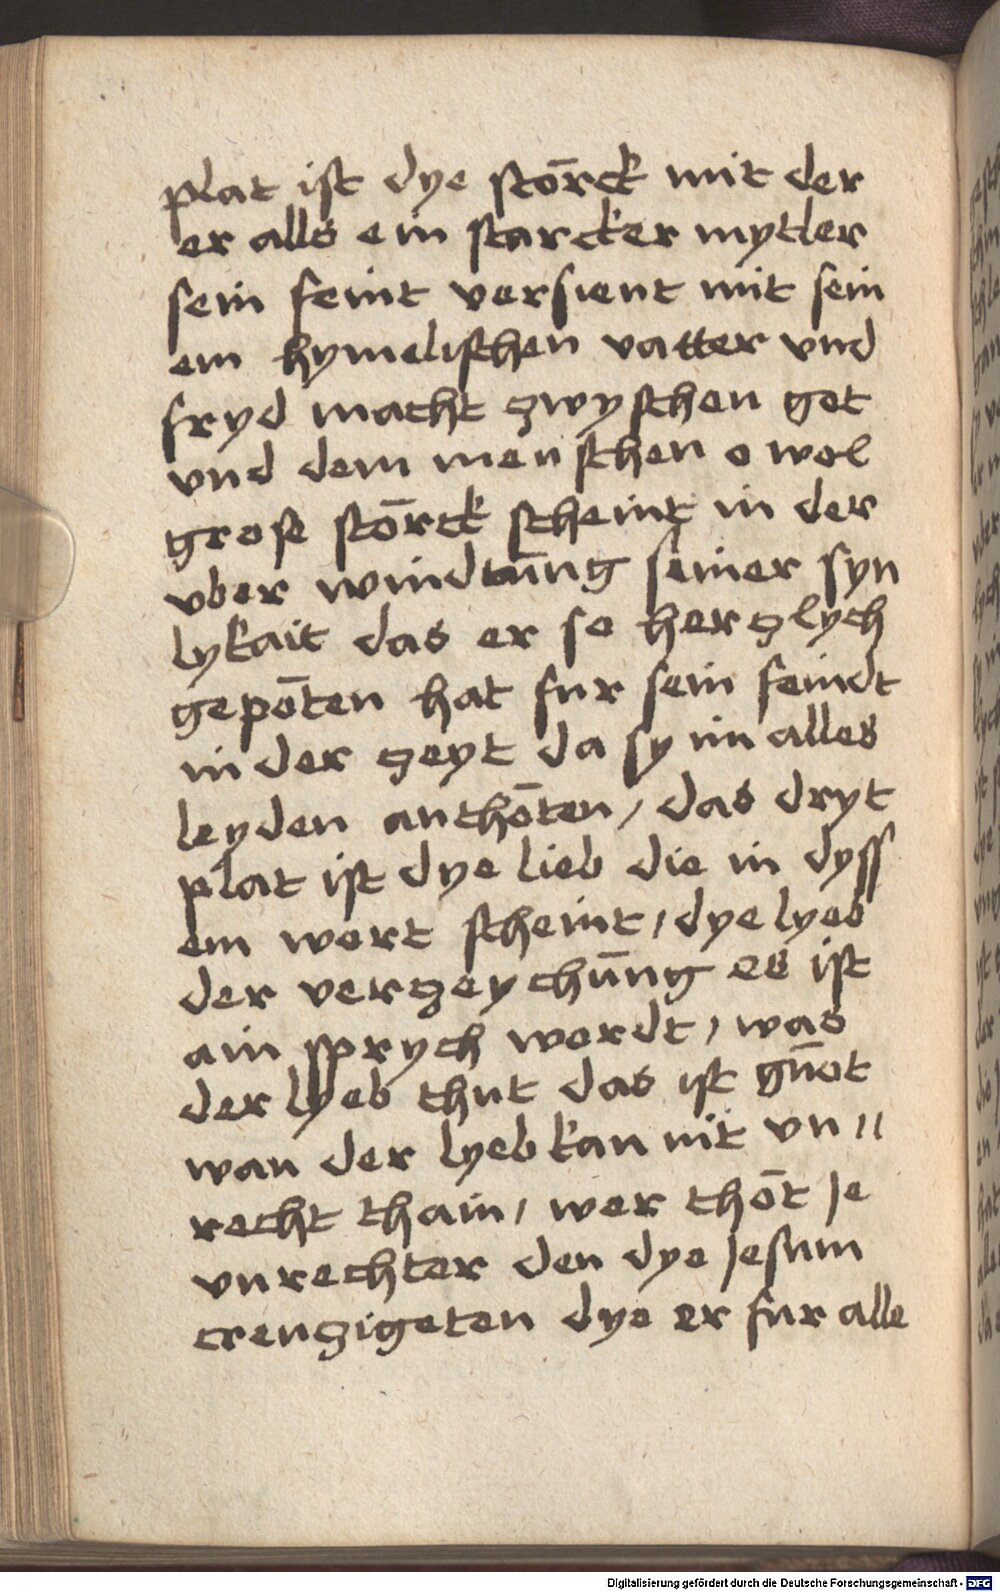 plat ist dye stōrck mit der
er alls ein starcker mytler
sein feint versient mit sein
em hymelischen vatter vnd
fryd macht zwyschen got
vnd dem menschen o wol
grose stōrck scheint in der
vber windtūng seiner syn
lykait das er so herzlych
gepōten hat fur sein feindt
in der zeyt da sy im alles
leyden anthōten / das dryt
plat ist dye lieb die in dyss
em wort scheint / dye lyeb
der verzeychūng es ist
ain sprych wordt / was
der lyeb thut das ist gūot
wan der lyeb kan nit vn //
recht thain / wer thōt Je
vnrechter den dye Jesum
creuzigeten dye er fur alle
Digitalisierung gefördert durch die Deutsche Forschungsgemeinschaft - DFG